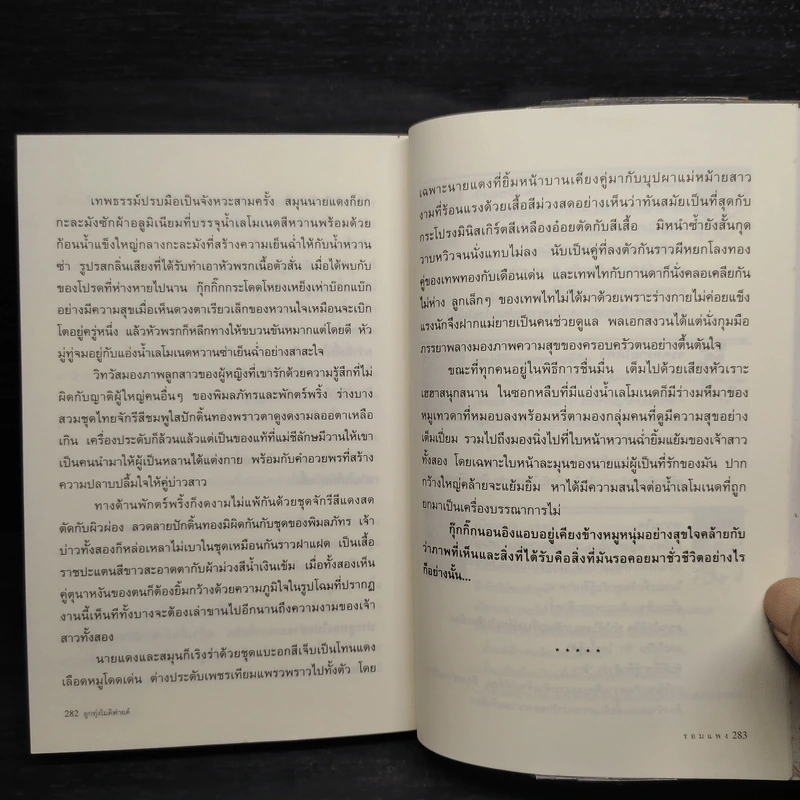 เทพธรรม์ปรบมือเป็นจังหวะสามครั้ง สมุนนายแดงก็ยก
กะละมังซักผ้าอลูมิเนียมที่บรรจุน้ำเลโมเนดสีหวานพร้อมด้วย
ก้อนน้ำแข็งใหญ่กลางกะละมังที่สร้างความเย็นฉ่ำให้กับน้ำหวาน
ซ่า รูปรสกลิ่นเสียงที่ได้รับทำเอาหัวพรกเนื้อตัวสั่น เมื่อได้พบกับ
ของโปรดที่ห่างหายไปนาน กุ๊กกิ๊กกระโดดโหยงเหยิงเห่าบ๊อกแบ๊ก
อย่างมีความสุขเมื่อเห็นดวงตาเรียวเล็กของหวานใจเหมือนจะเบิก
โตอยู่ครู่หนึ่ง แล้วหัวพรกก็หลีกทางให้ขบวนขันหมากแต่โดยดี หัว
มู่ทู่จมอยู่กับแอ่งน้ำเลโมเนดหวานซ่าเย็นฉ่ำอย่างสาสะใจ
วิทวัสมองภาพลูกสาวของผู้หญิงที่เขารักด้วยความรู้สึกที่ไม่
ผิดกับญาติผู้ใหญ่คนอื่นๆ ของพิมลภัทรและพักตร์พริ้ง ร่างบาง
สวมชุดไทยจักรีสีชมพูใสปักดิ้นทองพราวตาดูงดงามลออตาเหลือ
เกิน เครื่องประดับก็ล้วนแล้วแต่เป็นของแท้ที่แม่ชีลักษมีวานให้เขา
เป็นคนนำมาให้ผู้เป็นหลานได้แต่งกาย พร้อมกับคำอวยพรที่สร้าง
ความปลาบปลื้มใจให้คู่บ่าวสาว
ทางด้านพักตร์พริ้งก็งดงามไม่แพ้กันด้วยชุดจักรีสีแดงสด
ตัดกับผิวผ่อง ลวดลายปักดิ้นทองมิผิดกันกับชุดของพิมลภัทร เจ้า
บ่าวทั้งสองก็หล่อเหลาไม่เบาในชุดเหมือนกันราวฝาแฝด เป็นเสื้อ
ราชปะแตนสีขาวสะอาดตากับผ้าม่วงสีน้ำเงินเข้ม เมื่อทั้งสองเห็น
คู่ตุนาหงันของตนก็ต้องยิ้มกว้างด้วยความภูมิใจในรูปโฉมที่ปรากฏ
งานนี้เห็นทีทั้งบางจะต้องเล่าขานไปอีกนานถึงความงามของเจ้า
สาวทั้งสอง
นายแดงและสมุนก็เริงร่าด้วยชุดแบะอกสีเจ็บเป็นโทนแดง
เลือดหมูโดดเด่น ต่างประดับเพชรเทียมแพรวพราวไปทั้งตัว โดย
282 ลูกทุ่งโมดิฟายด์
เฉพาะนายแดงที่ยิ้มหน้าบานเคียงคู่มากับบุปผาแม่หม้ายสาว
งามที่ร้อนแรงด้วยเสื้อสีม่วงสดอย่างเห็นว่าทันสมัยเป็นที่สุดกับ
กระโปรงมินิสเกิร์ตสีเหลืองอ๋อยตัดกับสีเสื้อ มิหนำซ้ำยังสั้นกุด
วาบหวิวจนนั่งแทบไม่ลง นับเป็นคู่ที่ลงตัวกันราวผีหยกโลงทอง
คู่ของเทพทองกับเดือนเด่น และเทพไทกับกานดาก็นั่งคลอเคลียกัน
ไม่ห่าง ลูกเล็กๆ ของเทพไทไม่ได้มาด้วยเพราะร่างกายไม่ค่อยแข็ง
แรงนักจึงฝากแม่ยายเป็นคนช่วยดูแล พลเอกสงวนได้แต่นั่งกุมมือ
ภรรยาพลางมองภาพความสุขของครอบครัวตนอย่างตื้นตันใจ
ขณะที่ทุกคนอยู่ในพิธีการชื่นมื่น เต็มไปด้วยเสียงหัวเราะ
เฮฮาสนุกสนาน ในซอกหลืบที่มีแอ่งน้ำเลโมเนดก็มีร่างมหึมาของ
หมูเทวดาที่หมอบลงพร้อมหรี่ตามองกลุ่มคนที่ดูมีความสุขอย่าง
เต็มเปี่ยม รวมไปถึงมองนิ่งไปที่ใบหน้าหวานฉ่ำยิ้มแย้มของเจ้าสาว
ทั้งสอง โดยเฉพาะใบหน้าละมุนของนายแม่ผู้เป็นที่รักของมัน ปาก
กว้างใหญ่คล้ายจะแย้มยิ้ม หาได้มีความสนใจต่อน้ำเลโมเนดที่ถูก
ยกมาเป็นเครื่องบรรณาการไม่
กุ๊กกิ๊กนอนอิงแอบอยู่เคียงข้างหมูหนุ่มอย่างสุขใจคล้ายกับ
ว่าภาพที่เห็นและสิ่งที่ได้รับคือสิ่งที่มันรอคอยมาชั่วชีวิตอย่างไร
ก็อย่างนั้น...
* * * * *
รอมแพง 283